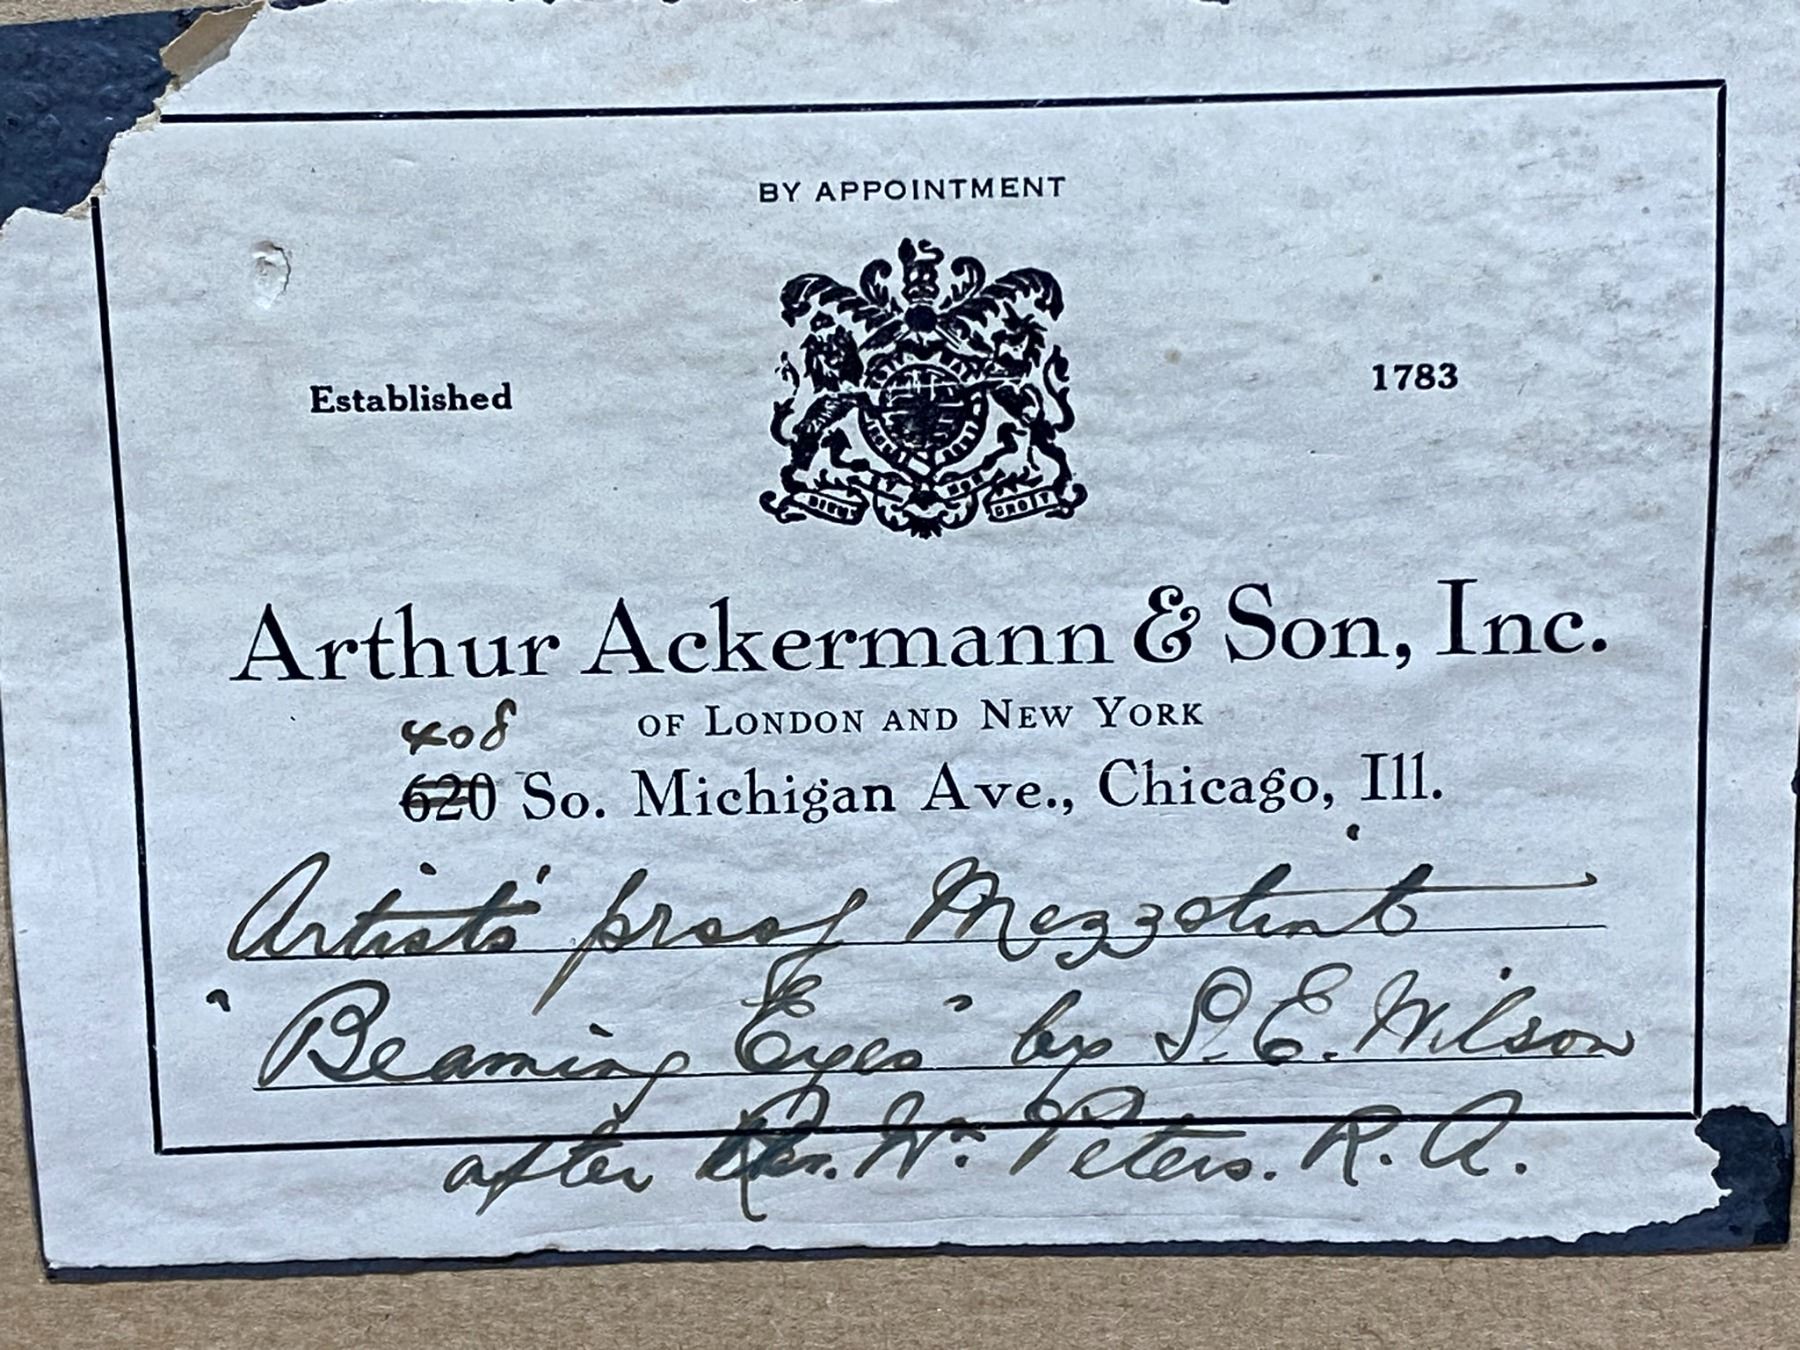 BY APPOINTMENT
DIEU ET MON DROIT
Established 1783
Arthur Ackermann & Son, Inc.
OF LONDON AND NEW YORK
408
620 So. Michigan Ave., Chicago, Ill.
Artists' proof Mezzotint
"Beaming Eyes" by S. E. Wilson
after Rev. Wm. Peters. R. A.